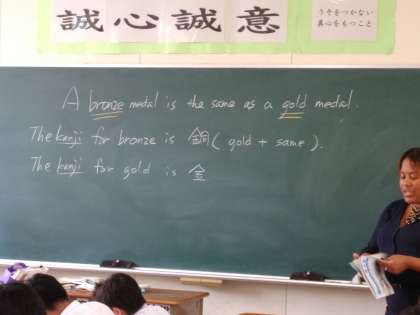 誠心誠意
うそをつかない
真心をもつこと
A bronze medal is the same as a gold medal.
The kanji for bronze is 銅 (gold + same).
The kanji for gold is 金